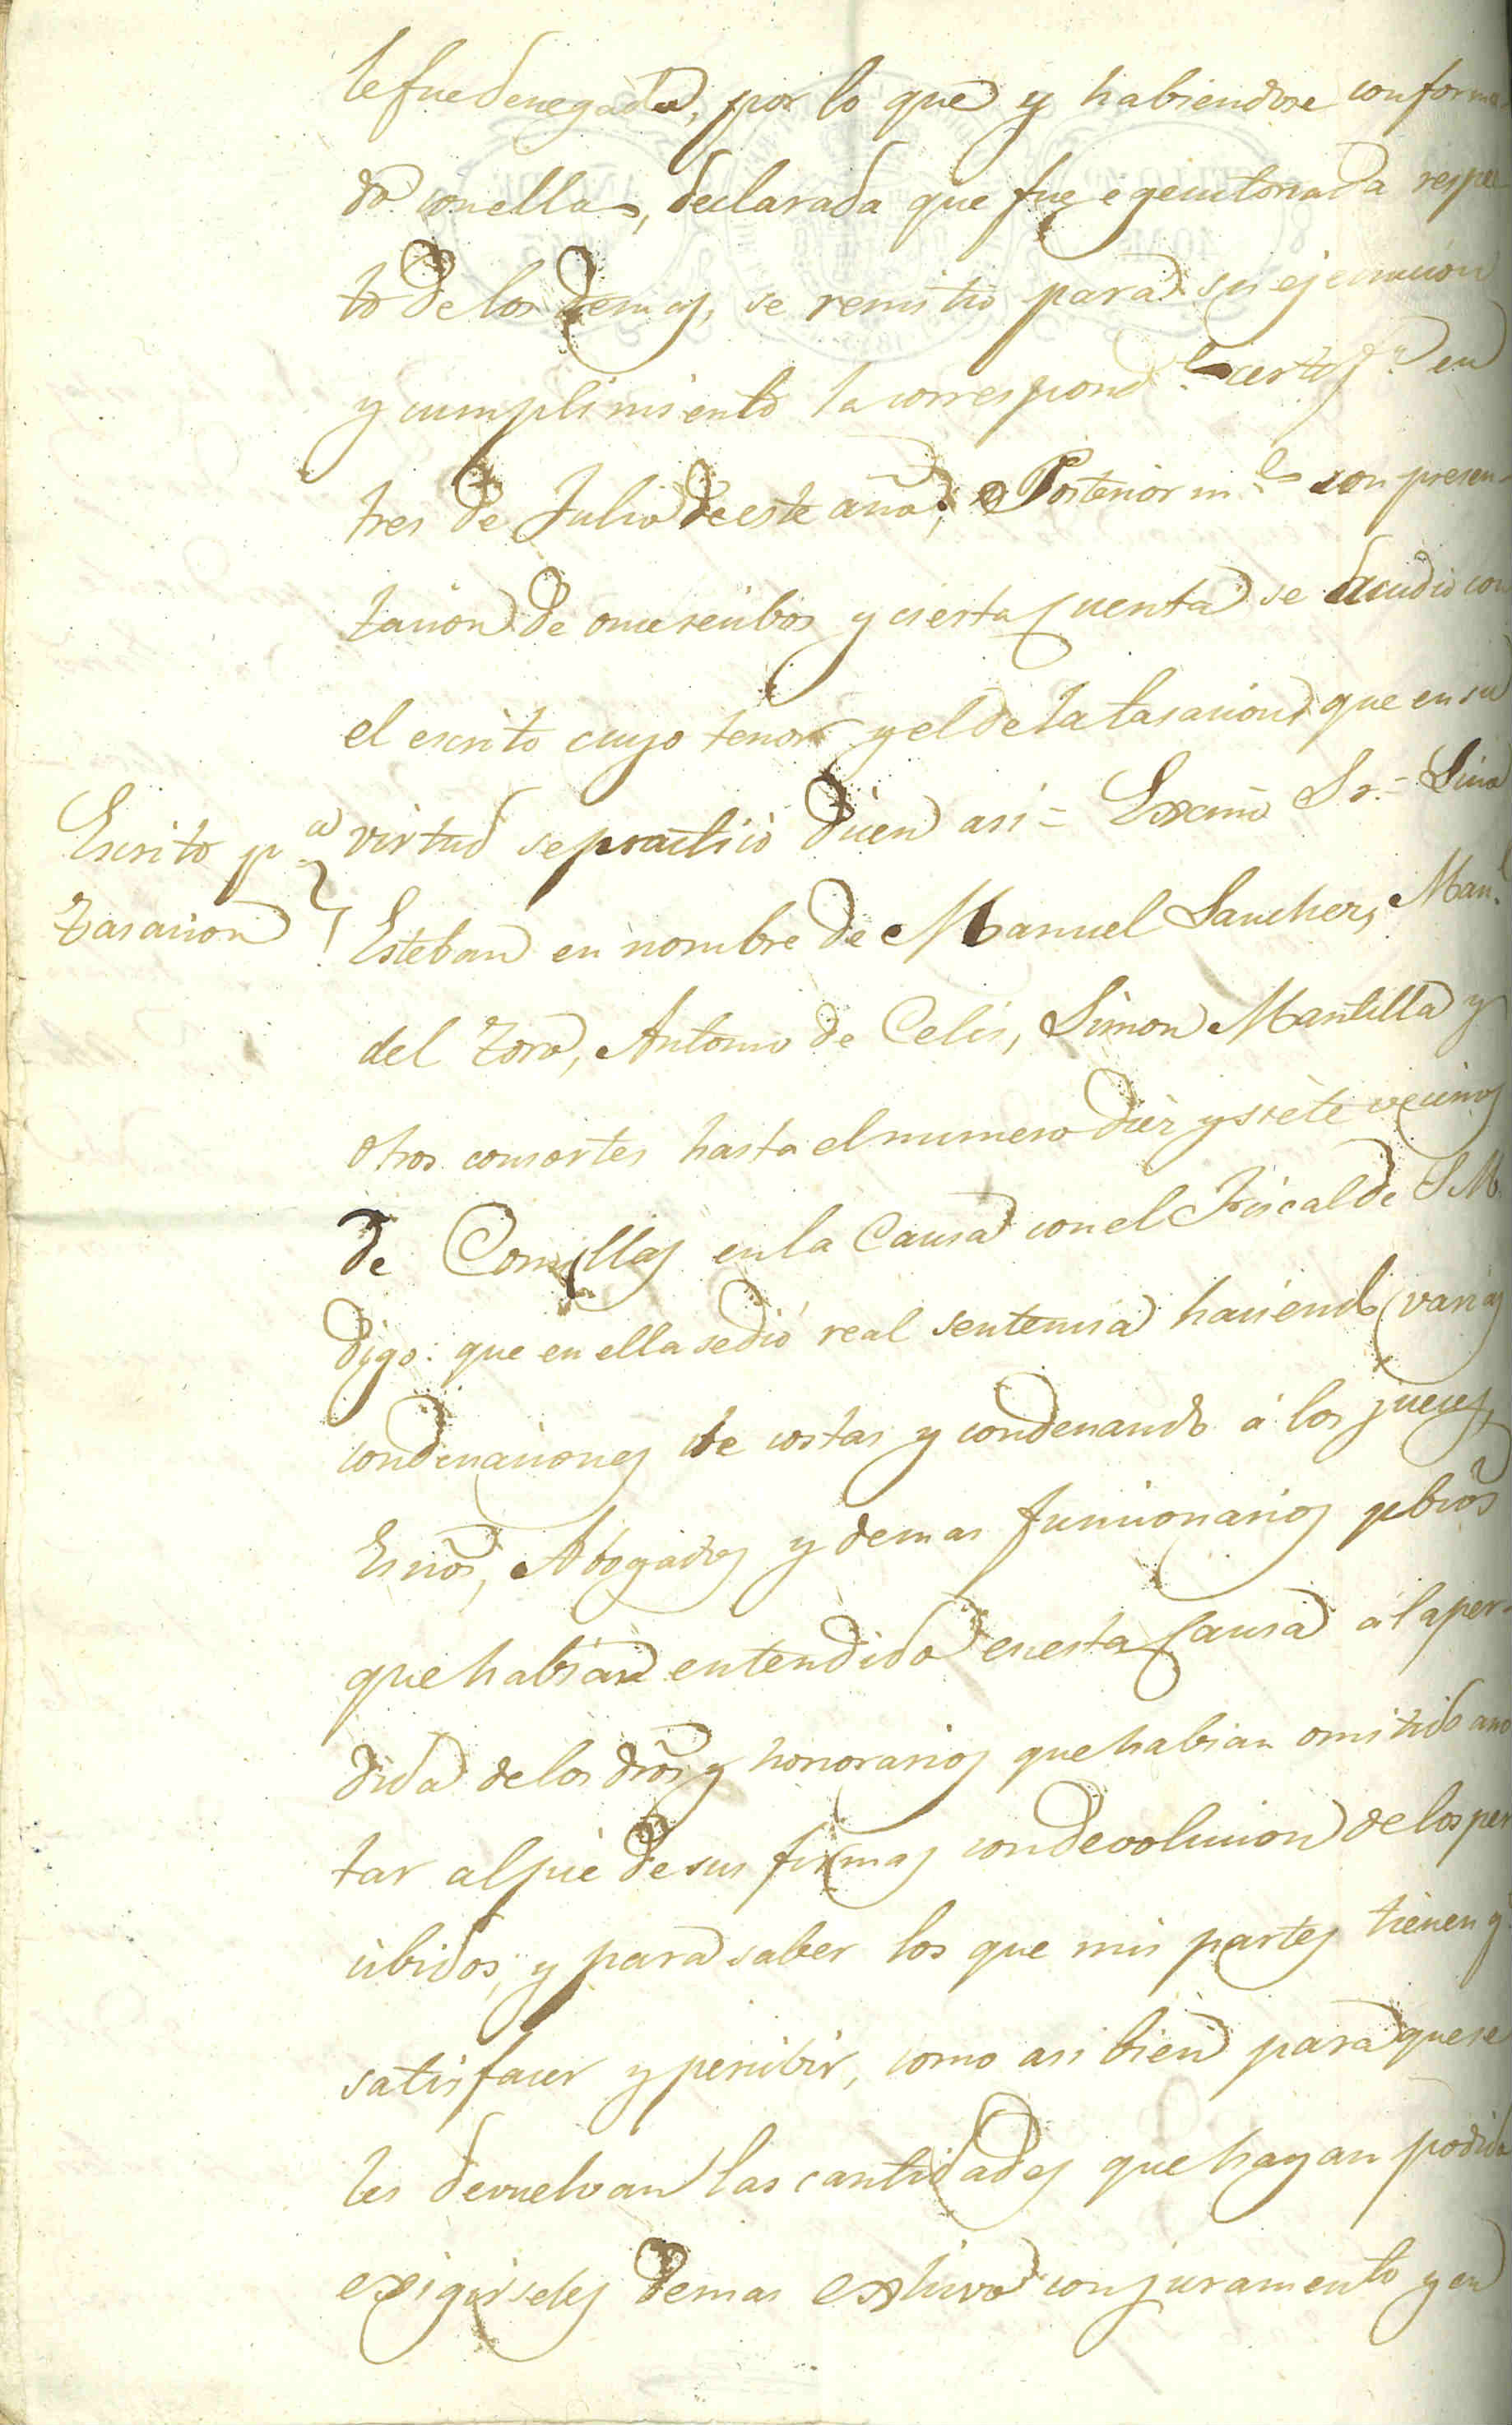 le fue denegada, por lo que y habiendose conforma
do con ella, declarada que fue egecutoriada respec
to de los demas, se remitio para su ejecucion
y cumplimiento la correspond.te certif.n en
tres de Julio de este año. Posteriorm.te con presen-
tacion de once recibos y cierta Cuenta se acudio con
el escrito cuyo tenor y el de la tasacion que en su
Escrito p.a
Tasacion
virtud se practicó dicen asi = Excmo Sr. = Lino
Esteban en nombre de Manuel Sanchez, Man.l
del Toro, Antonio de Celis, Simon Mantilla y
otros consortes hasta el numero diez y siete vecinos
de Comillas en la Causa con el Fiscal de S.M.
digo: que en ella se dió real sentencia haciendo varias
condenaciones de costas y condenando á los jueces,
Esnos, Abogados y demas funcionarios pbcos
que habian entendido en esta Causa á la per-
dida de los dros y honorarios que habian omitido ano
tar al pie de sus firmas con devolucion de los per
cibidos; y para saber los que mis partes tienen q.e
satisfacer y percibir, como asi bien para que se
les devuelvan las cantidades que hayan podido
exigirseles demas exhivo con juramento y en